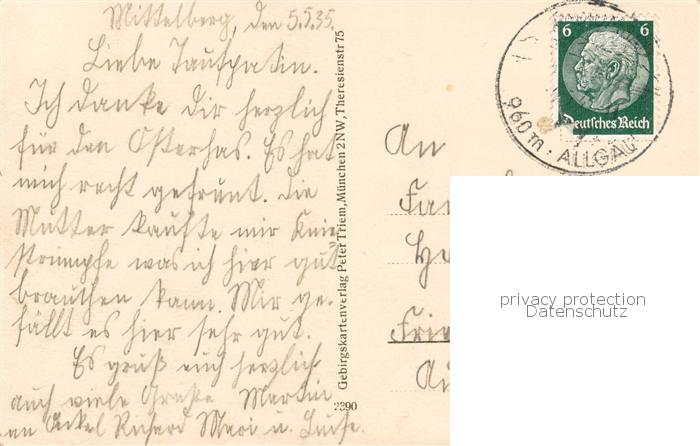 Mittelberg, den 5.5.35.
Liebe Taufpatin.
Ich danke dir herzlich
für den Osterhas. Es hat
mich recht gefreut. Die
Mutter kaufte mir Knie
strümpfe was ich hier gut
brauchen kann. Mir ge-
fällt es hier sehr gut.
Es grüß euch herzlich
auch viele Grüße Martin
an Onkel Richard Mari u. Luise.
Gebirgskartenverlag Peter Triem, München 2 NW, Theresienstr 75
2390
6 6
Deutsches Reich
960 m. ALLGÄU
An
privacy protection
Datenschutz